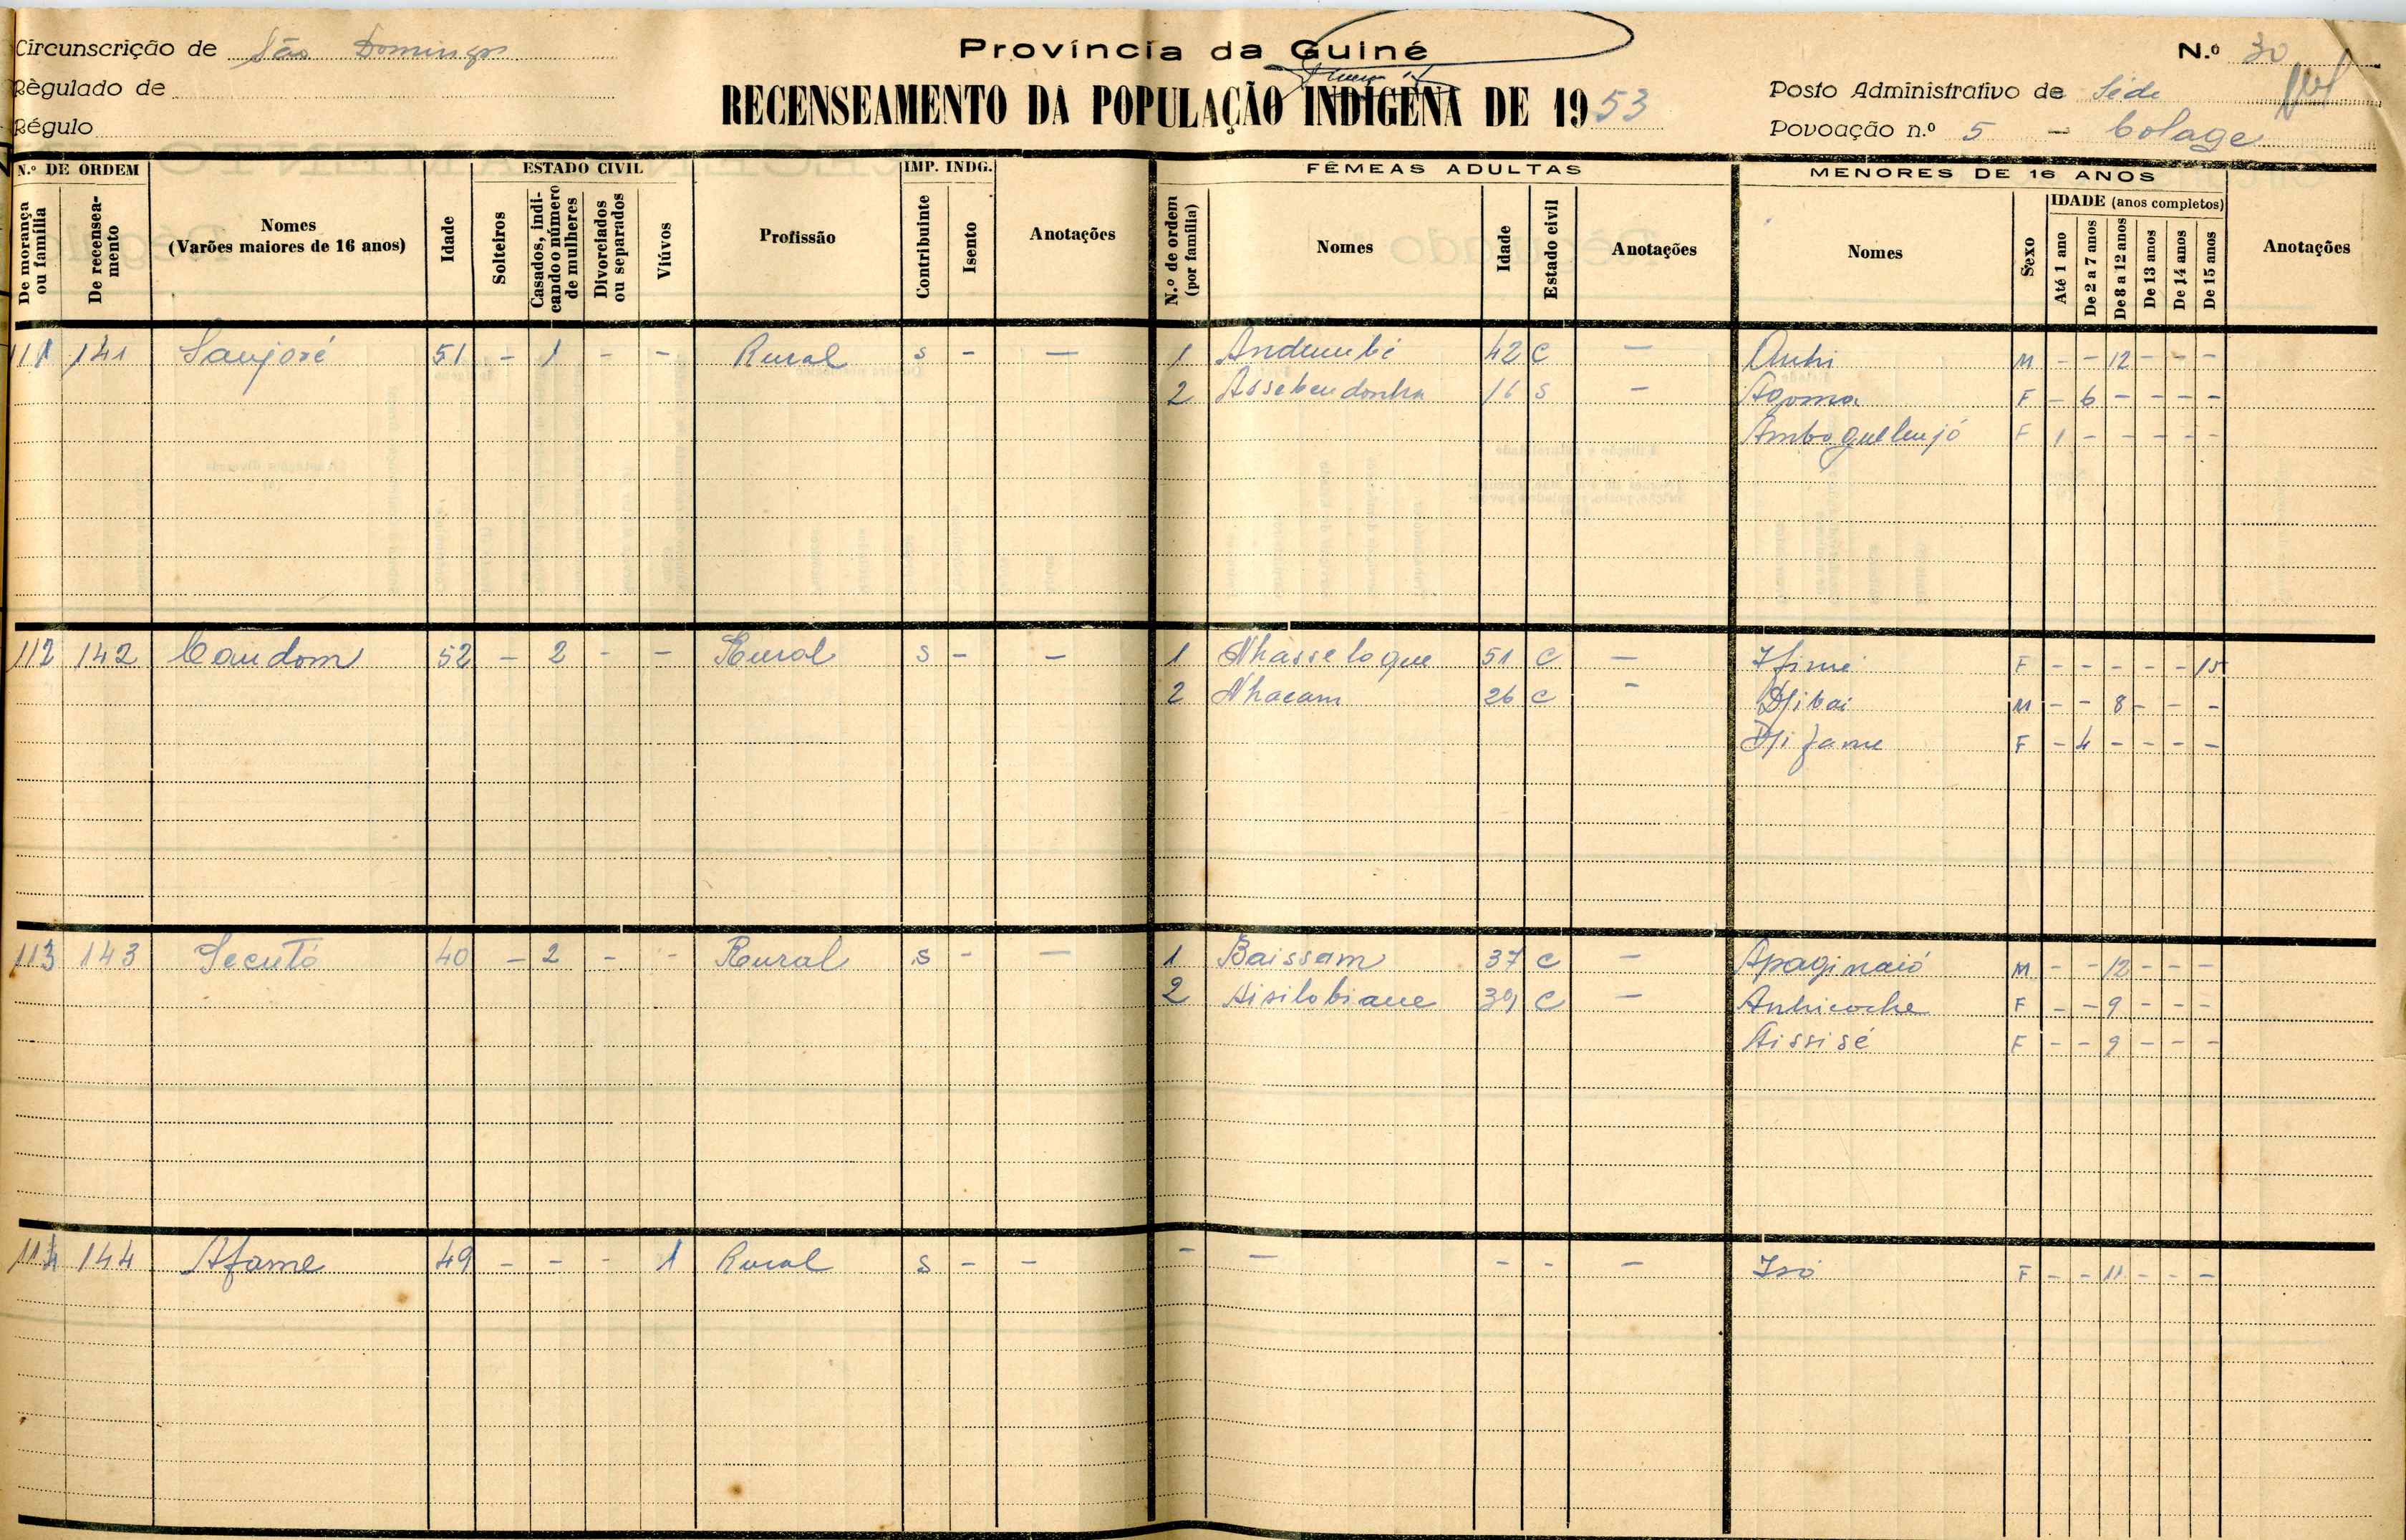 Circunscrição de São Domingos
Província da Guiné
N.º 30
Règulado de
Régulo
RECENSEAMENTO DA POPULAÇÃO INDÍGENA DE 1953
Posto Administrativo de Séde
Povoação n.º 5 - Colage
N.º DE ORDEM
De morança ou família
De recenseamento
Nomes
(Varões maiores de 16 anos)
Idade
ESTADO CIVIL
Solteiros
Casados, indicando o número de mulheres
Divorciados ou separados
Viúvos
Profissão
IMP. INDG.
Contribuinte
Isento
Anotações
FÊMEAS ADULTAS
N.º de ordem (por família)
Nomes
Idade
Estado civil
Anotações
MENORES DE 16 ANOS
Nomes
Sexo
IDADE (anos completos)
Até 1 ano
De 2 a 7 anos
De 8 a 12 anos
De 13 anos
De 14 anos
De 15 anos
Anotações
111 141 Sanjosé 51 - 1 - - Rural s - - 1 Andumbé 42 C - M - - 12 - - -
2 Assebendonha 16 S - Agoma F - 6 - - - -
Amboguelenjó F 1 - - - - -
112 142 Candom 52 - 2 - - Rural s - - 1 Nhasseloque 51 C - F - - - - - 15
2 Nhacam 26 C - Djibai M - - 8 - - -
Djifame F - 4 - - - -
113 143 Secutó 40 - 2 - - Rural s - - 1 Baissam 37 C - Apaginaió M - - 12 - - -
2 Aisilobiane 39 C - Anhicoche F - - 9 - - -
Aissisé F - - 9 - - -
114 144 Afame 49 - - - 1 Rural s - - - - - - - Isó F - - 11 - - -